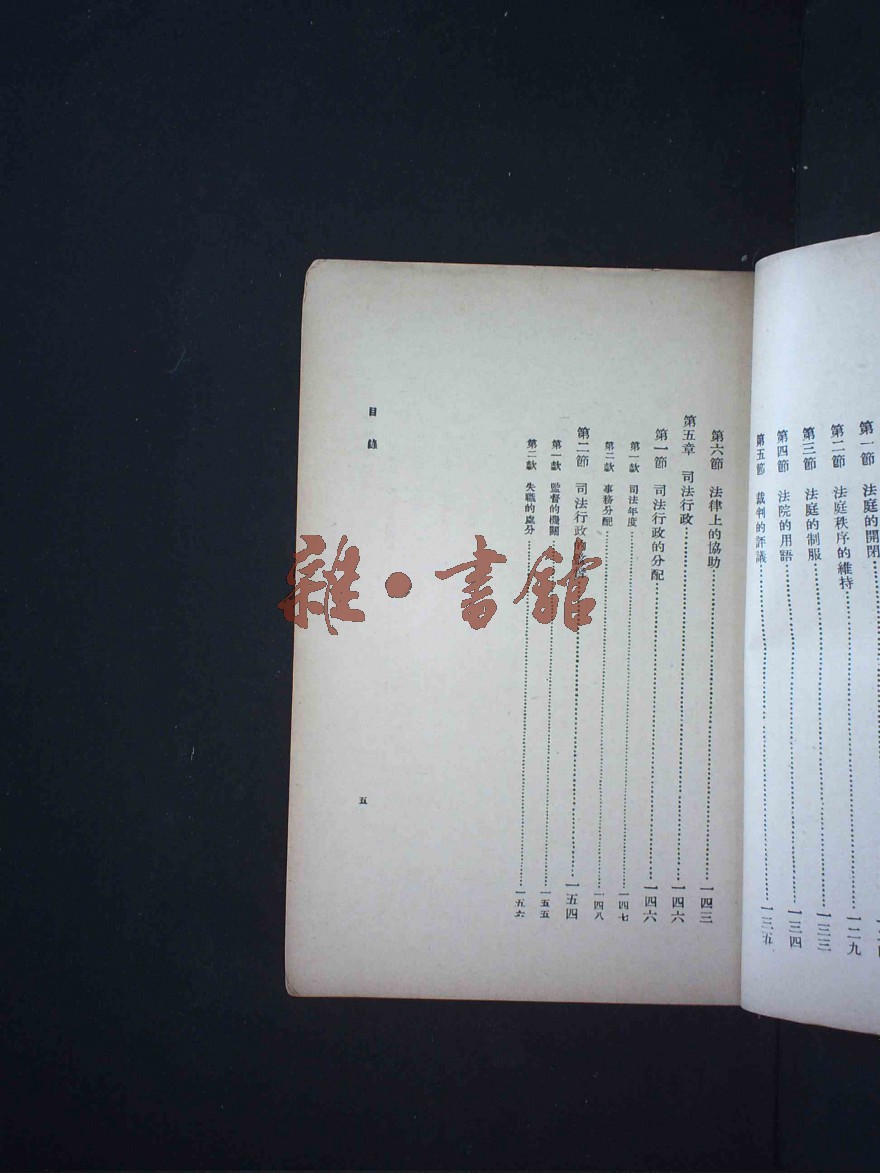 第一節 法庭的開閉
第二節 法庭秩序的維持……一二九
第三節 法庭的制服……一三三
第四節 法院的用語……一三四
第五節 裁判的評議……一三五
第六節 法律上的協助……一四三
第五章 司法行政……一四六
第一節 司法行政的分配……一四六
第一款 司法年度……一四七
第二款 事務分配……一四八
第二節 司法行政的……一五四
第一款 監督的機關……一五五
第二款 失職的處分……一五六
目錄
五
雜·書館